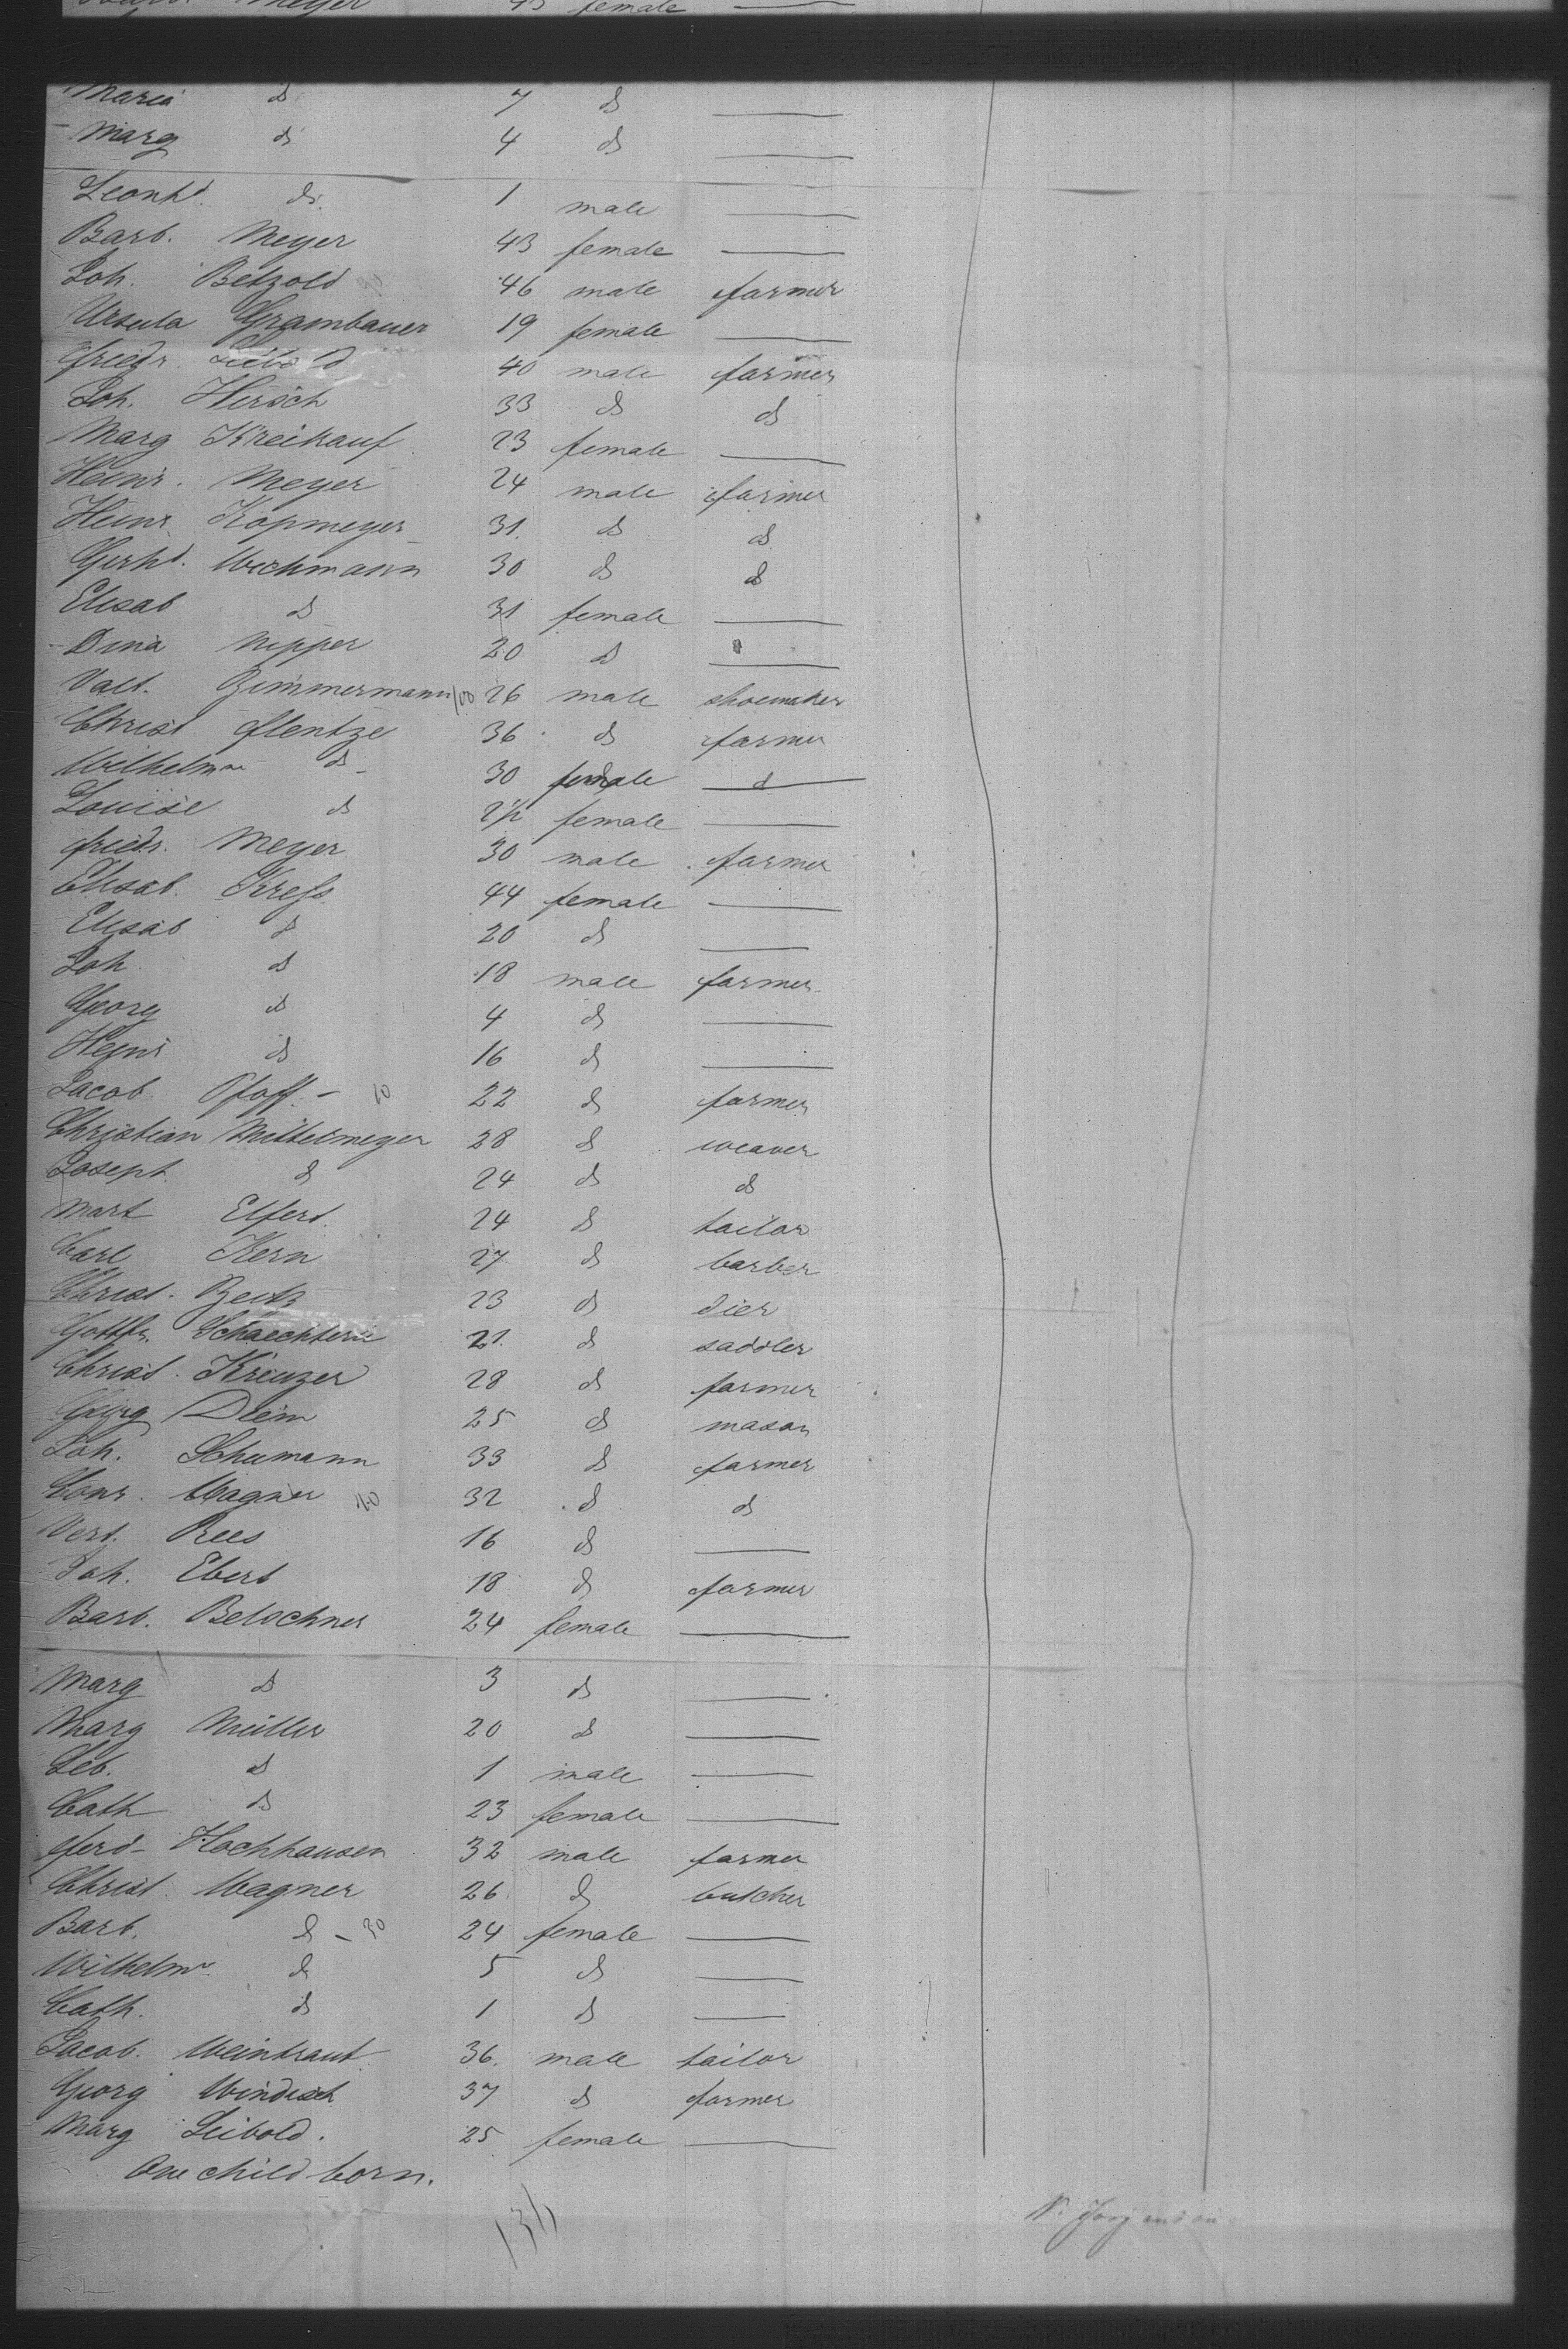 Meyer 43 female —
Maria ds 7 ds —
Marg ds 4 ds —
Leonhd. ds. 1 male —
Barb. Meyer 43 female —
Joh. Betzold 46 male farmer
Ursula Grambauer 19 female —
Friedr. Leibold 40 male farmer
Joh. Hirsch 33 ds ds
Marg Kreikauf 23 female —
Heinr. Meyer 24 male farmer
Heinr. Kopmeyer 31. ds ds
Gerhd. Wichmann 30 ds ds
Elisab ds 31 female —
Dina Nipper 20 ds —
Valt. Zimmermann 100 26 male shoemaker
Christ Flentze 36 ds farmer
Wilhelmne ds 30 female —
Louise ds 2½ female —
Friedr. Meyer 30 male farmer
Elisab. Kress 44 female —
Elisab ds 20 ds —
Joh ds 18 male farmer
Georg ds 4 ds —
Heinr ds 16 ds —
Jacob Pfaff. – 10 22 ds farmer
Christian Mittelmeyer 28 ds weaver
Joseph ds 24 ds ds
Mart Elfert. 24 ds tailor
Carl Kern 27 ds barber
Christ. Zeitz 23 ds dier
Gottfr. Schaechterle 21. ds saddler
Christ. Kreuzer 28 ds farmer
Georg Diem 25 ds mason
Joh. Schumann 33 ds farmer
Conr. Wagner 32 ds ds
Rees 16 ds —
Joh. Ebert 18 ds farmer
Barb. Belschner 24 female —
Marg ds 3 ds —
Marg Müller 20 ds —
Seb. ds 1 male —
Cath ds 23 female —
Ferd– Hochhausen 32 male farmer
Christ. Wagner 26 ds butcher
Barb. ds – 30 24 female —
Wilhelmne ds 5 ds —
Cath. ds 1 ds —
Jacob. Weintraut 36. male tailor
Georg Windisch 37 ds farmer
Marg Leibold. 25 female —
One child born.
136